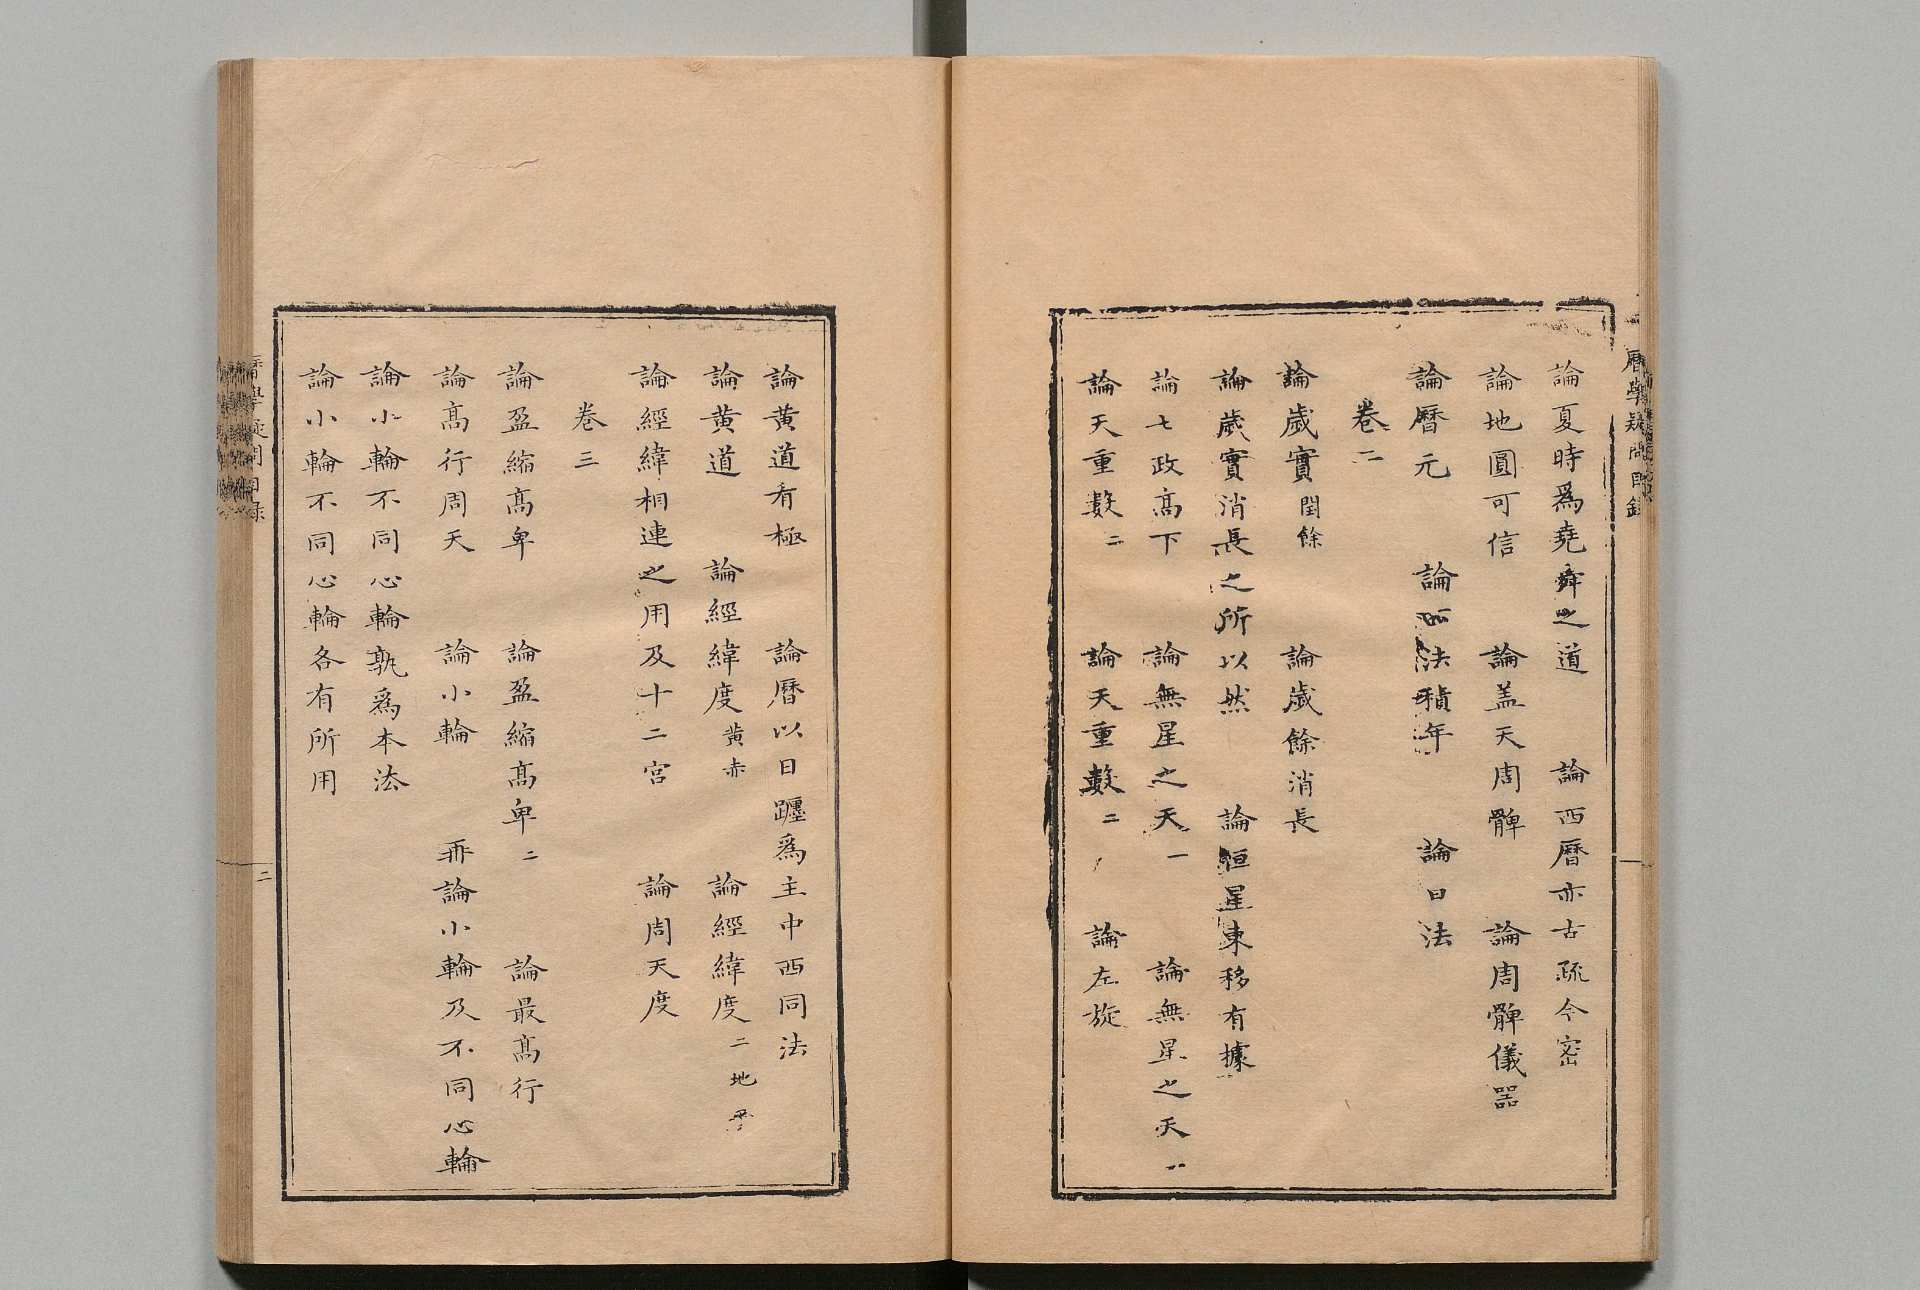 曆學疑問目錄
論夏時爲堯舜之道　論西曆亦古疏今密
論地圓可信　論盖天周髀　論周髀儀器
論曆元　論西法積年　論日法
卷二
論歲實閏餘　論歲餘消長
論歲實消長之所以然　論恒星東移有據
論七政高下　論無星之天一　論無星之天
論天重數二　論天重數二　論左旋
論黄道有極　論曆以日躔爲主中西同法
論黄道　論經緯度黄赤　論經緯度二地
論經緯相連之用及十二宮　論周天度
卷三
論盈縮髙卑　論盈縮髙卑二　論最髙行
論髙行周天　論小輪　再論小輪及不同心輪
論小輪不同心輪孰爲本法
論小輪不同心輪各有所用
曆學疑問目錄
二